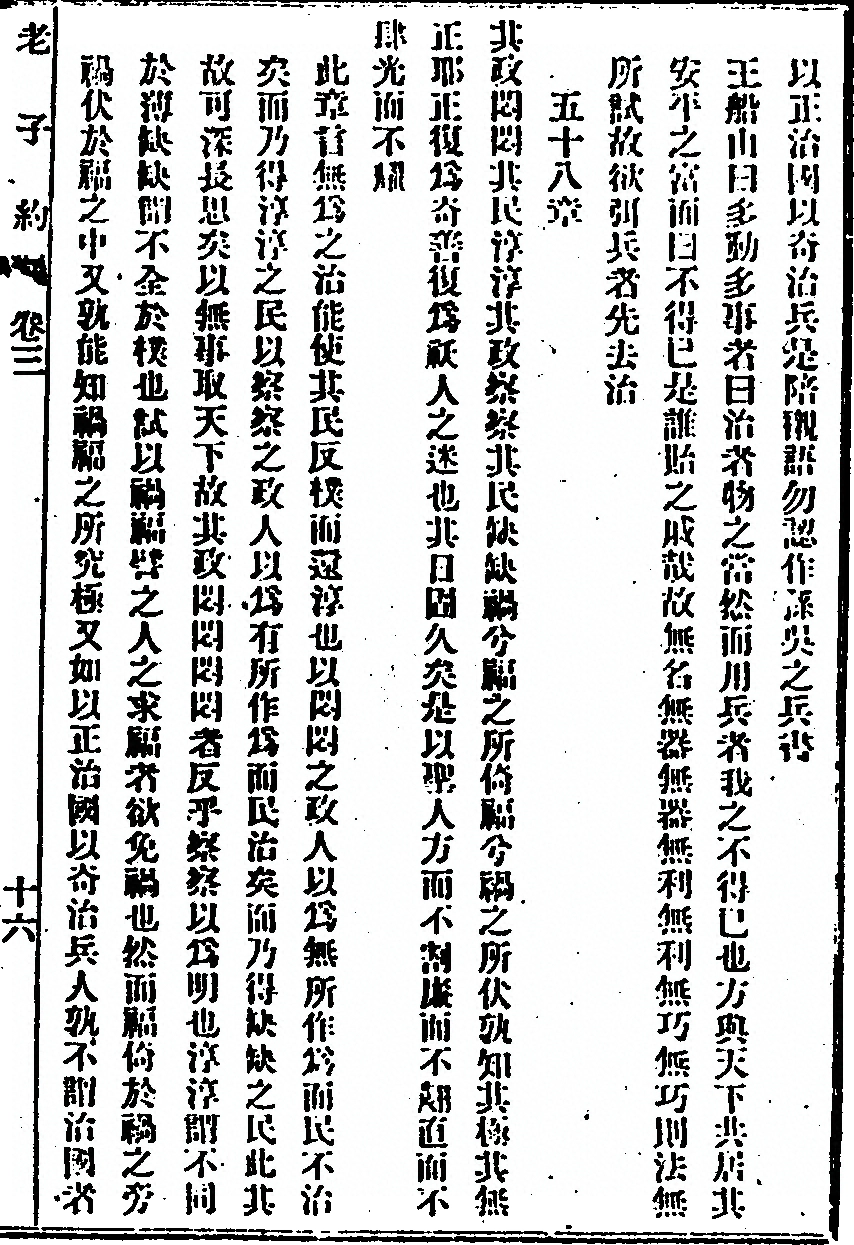 以正治國以奇治兵是陪襯語勿認作孫吳之兵書
王船山曰多動多事者曰治者物之當然而用兵者我之不得已也方與天下共居其
安平之富而曰不得已是誰貽之戚哉故無名無器無器無利無利無巧無巧則法無
所試故欲弭兵者先去治
五十八章
其政悶悶其民淳淳其政察察其民缺缺禍兮福之所倚福兮禍之所伏孰知其極其無
正耶正復爲奇善復爲祅人之迷也其日固久矣是以聖人方而不割廉而不劌直而不
肆光而不耀
此章言無爲之治能使其民反樸而還淳也以悶悶之政人以爲無所作爲而民不治
矣而乃得淳淳之民以察察之政人以爲有所作爲而民治矣而乃得缺缺之民此其
故可深長思矣以無事取天下故其政悶悶悶悶者反乎察察以爲明也淳淳謂不同
於薄缺缺謂不全於樸也試以禍福譬之人之求福者欲免禍也然而福倚於禍之旁
禍伏於福之中又孰能知禍福之所究極又如以正治國以奇治兵人孰不謂治國者
老子約 卷三 十六